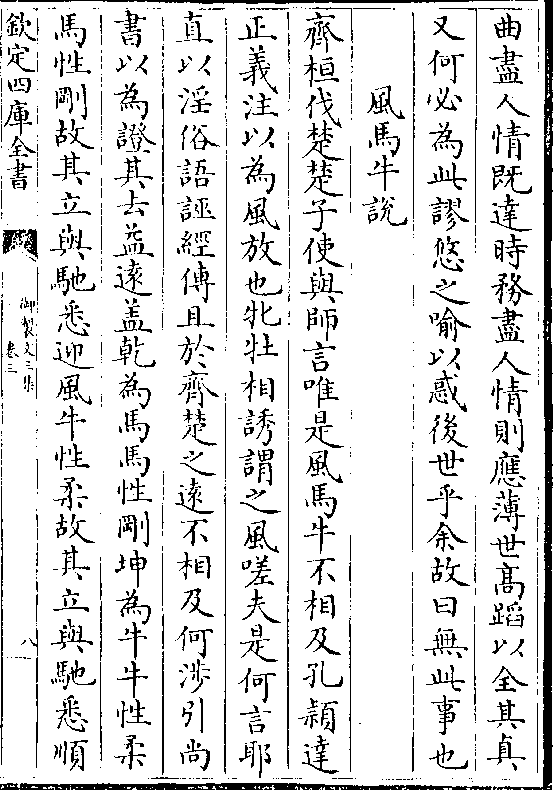 曲盡人情既達時務盡人情則應薄世髙蹈以全其真
又何必為此謬悠之喻以惑後世乎余故曰無此事也
風馬牛說
齊桓伐楚楚子使與師言唯是風馬牛不相及孔頴達
正義注以為風放也牝牡相誘謂之風嗟夫是何言耶
直以淫俗語誣經傳且於齊楚之遠不相及何涉引尚
書以為證其去益遠盖乾為馬馬性剛坤為牛牛性柔
馬性剛故其立與馳悉迎風牛性柔故其立與馳悉順
欽定四庫全書
御製文三集
卷三
八